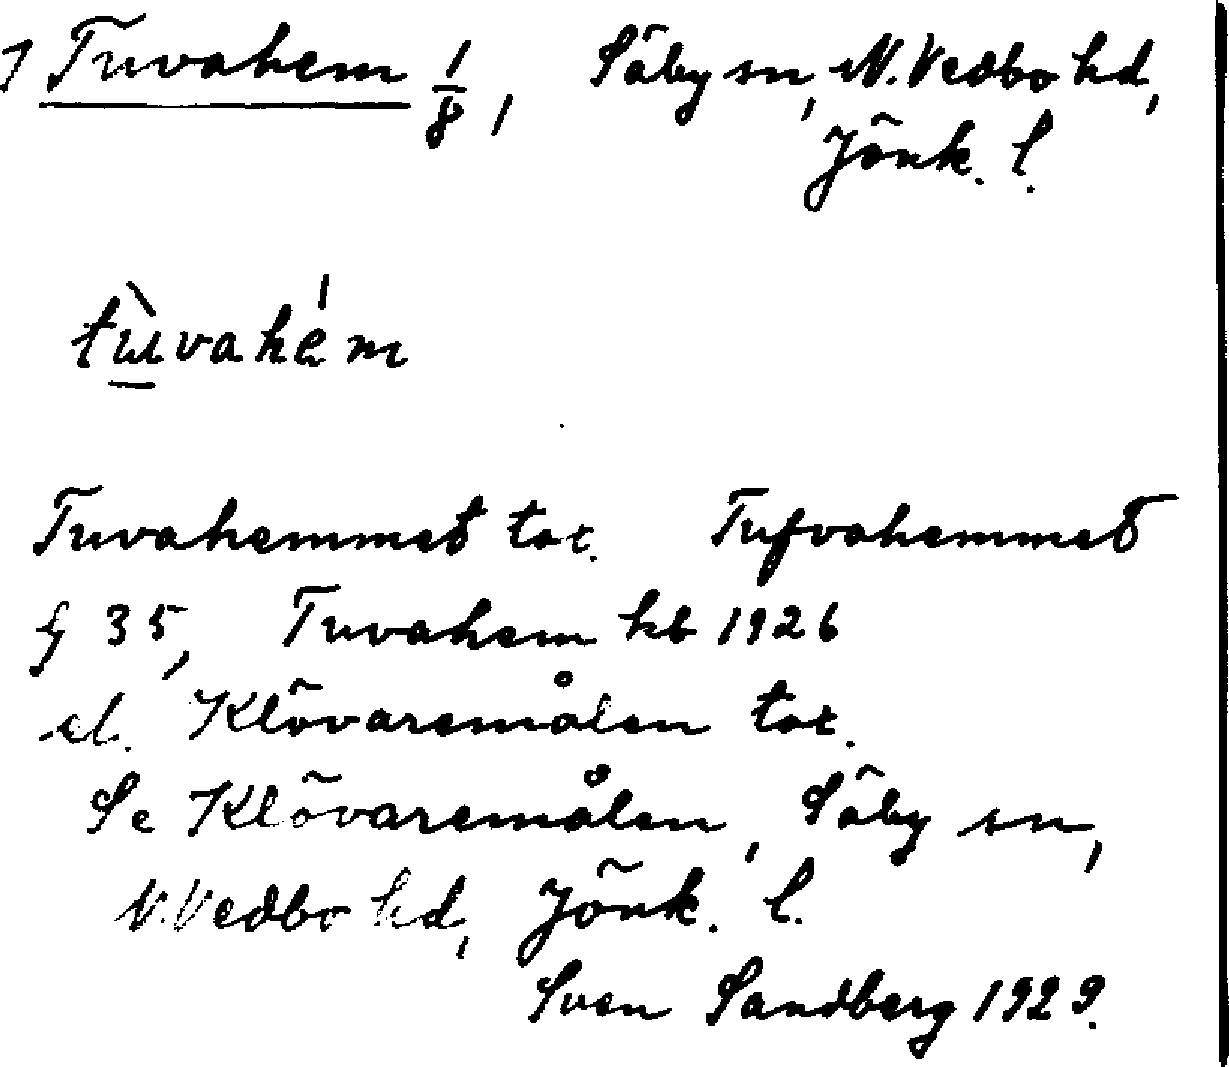 Tuvahem 1/8, Säby sn, N. Vedbo hd,
Jönk. l.
tùvahém
Tuvahemmet tax. Tufvahemmet
g 35, Tuvahem kb 1926
el. Klövaremålen tax.
Se Klövaremålen, Säby sn,
N. Vedbo hd, Jönk. l.
Sven Sandberg 1929.